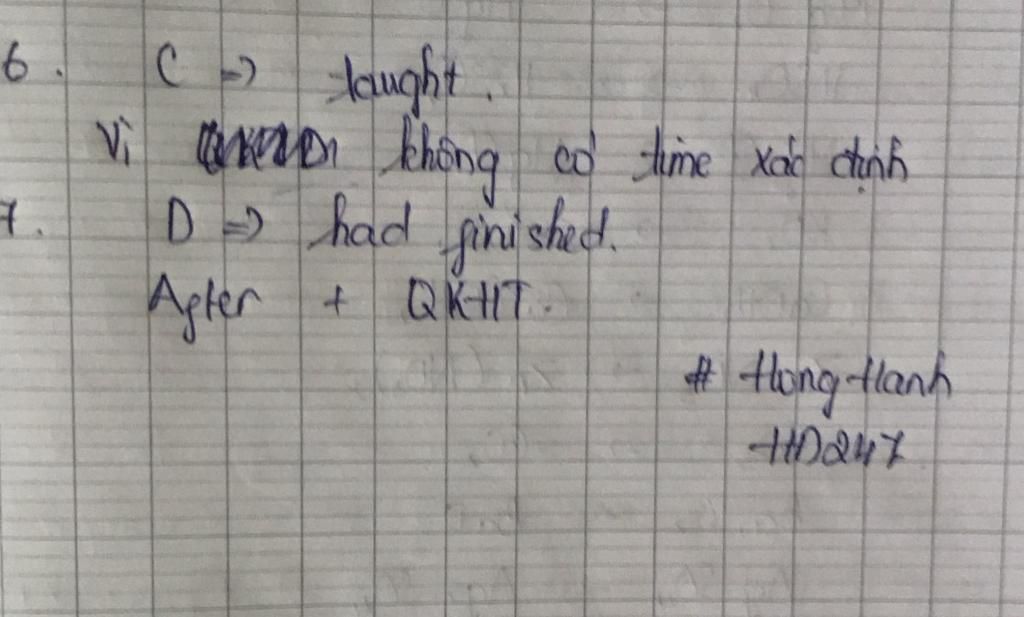 6. C => taught.
Vì không có time xác định
7. D => had finished.
After + QKHT.
# Hong Hanh
HD247